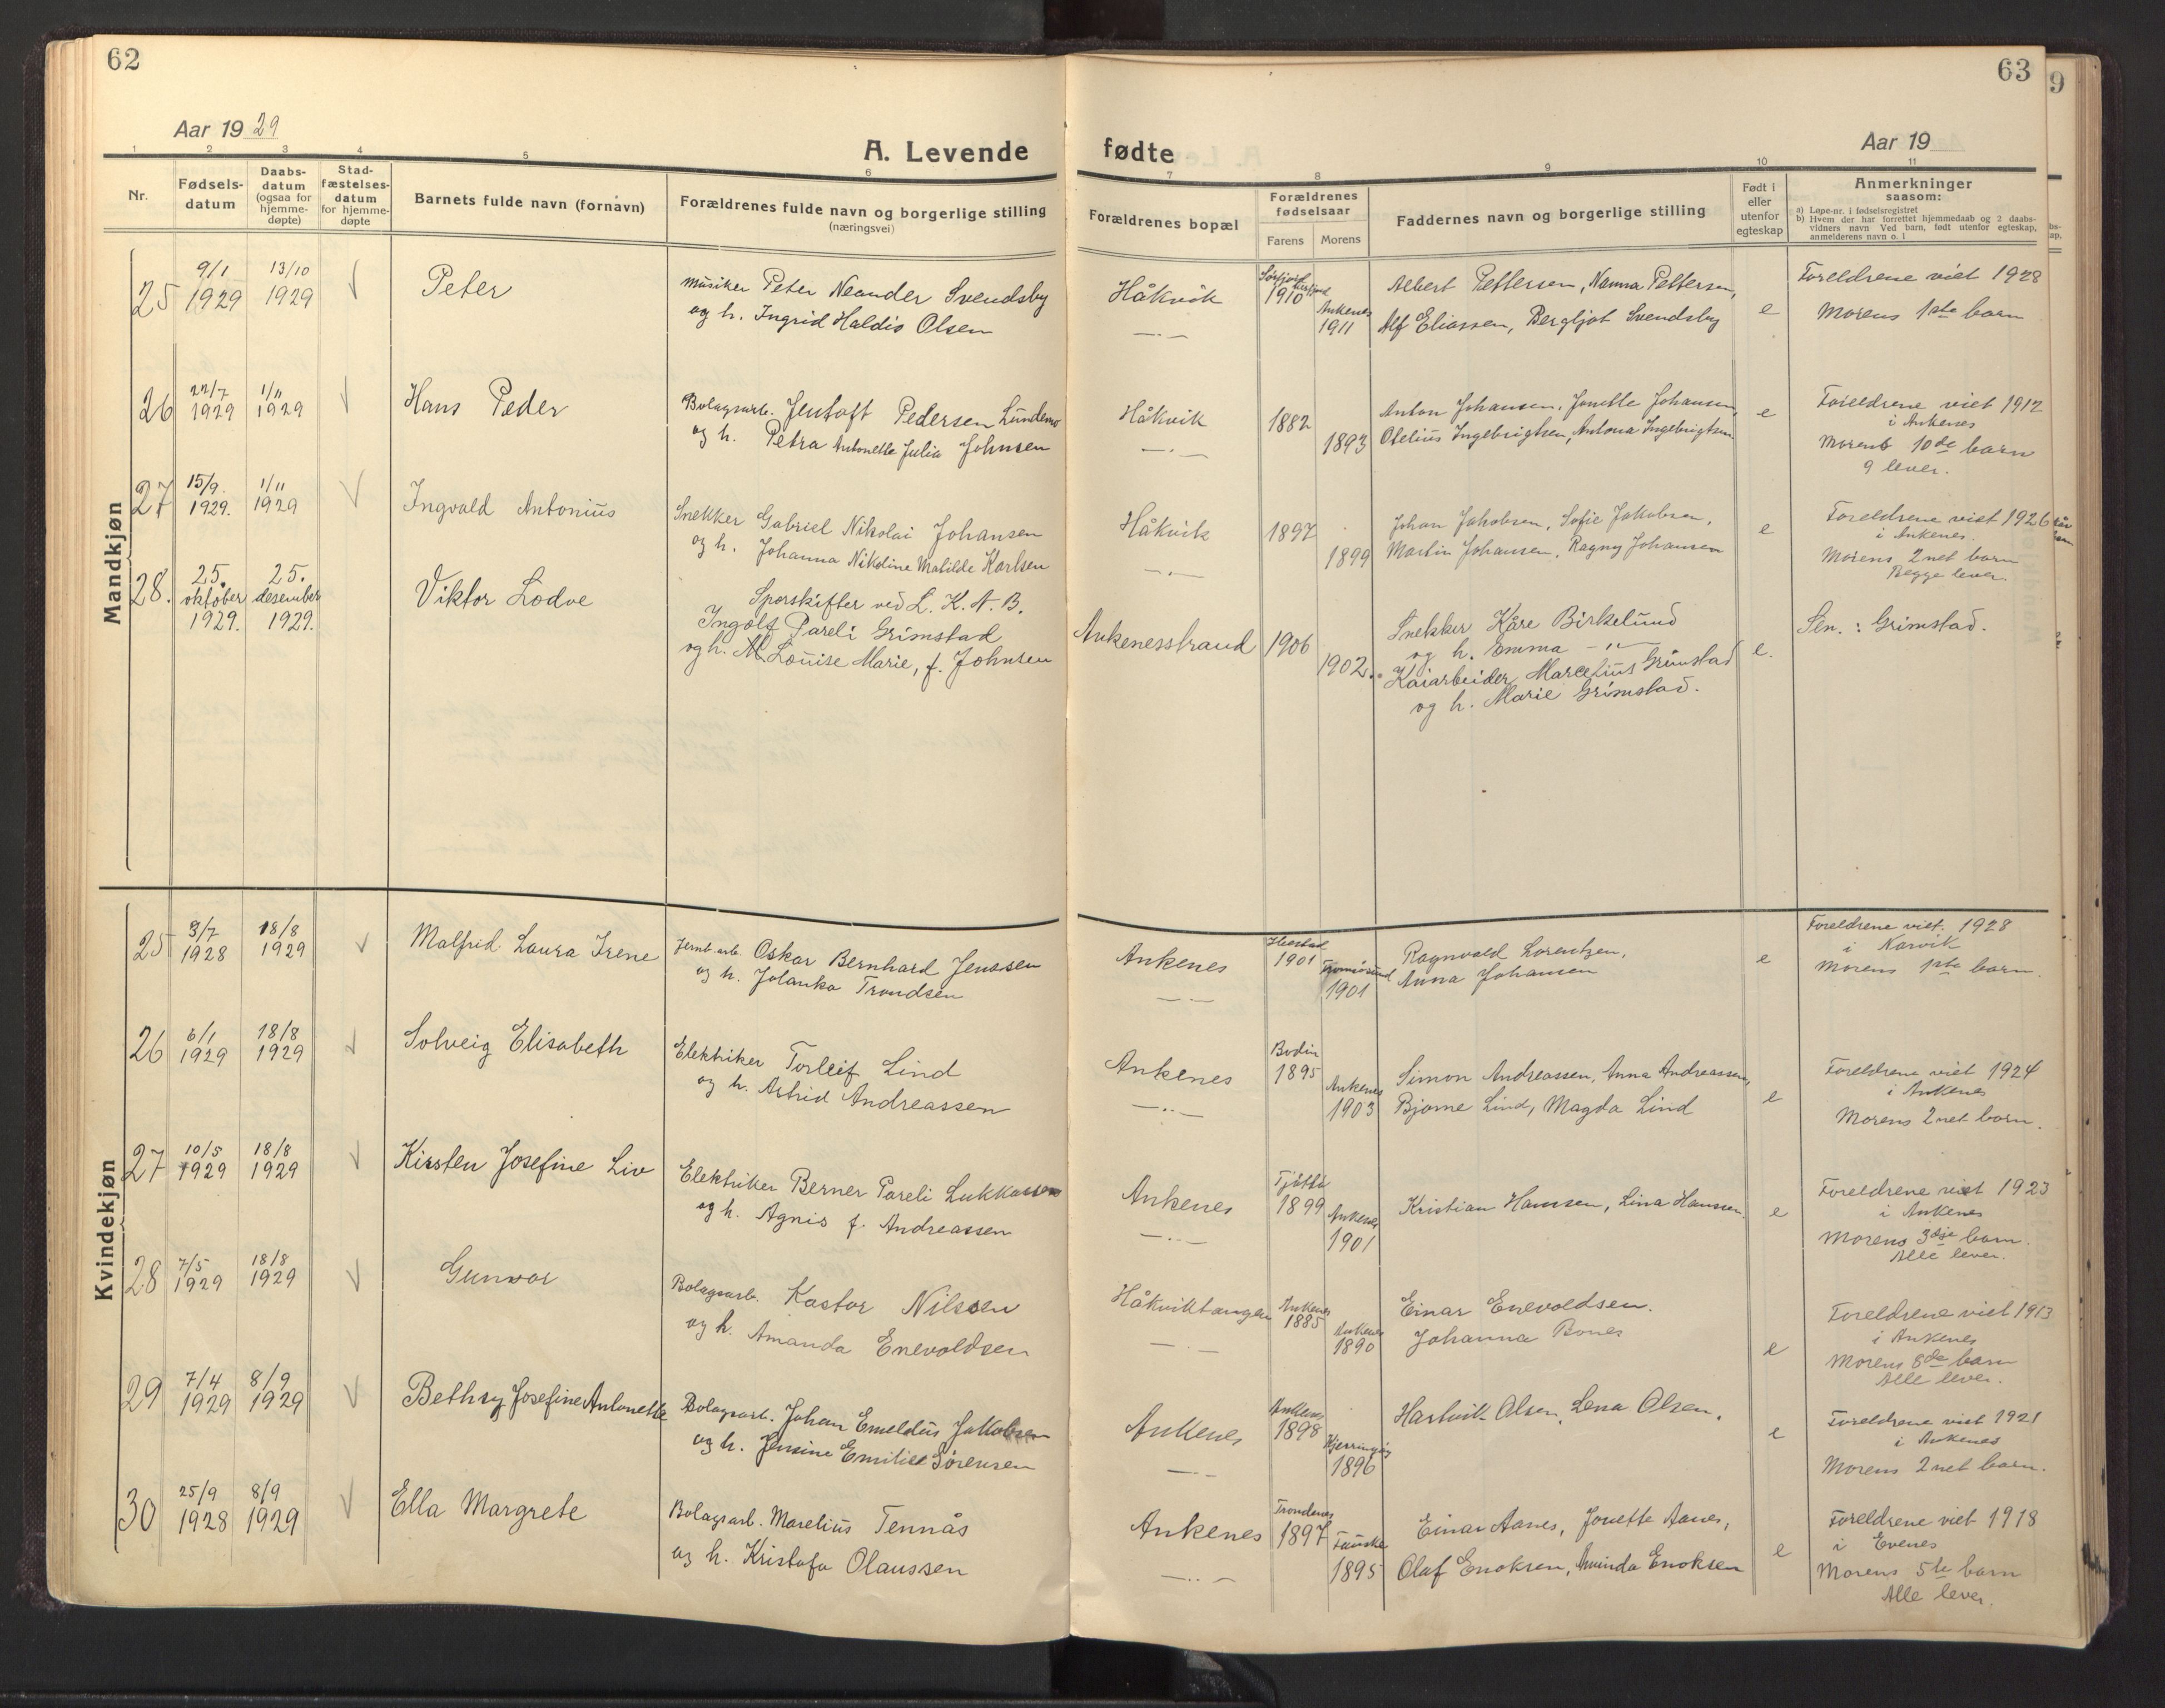 62
Aar 1929
A. Levende
1 2 3 4 5 6
Nr.
Fødsels-
datum
Daabs-
datum
(ogsaa for
hjemme-
døpte)
Stad-
fæstelses-
datum
for hjemme-
døpte
Barnets fulde navn (fornavn)
Forældrenes fulde navn og borgerlige stilling
(næringsvei)
Mandkjøn
25 9/1 1929 13/10 1929 Peter
Musiker Peter Neander Svendsby
og h. Ingrid Haldis Olsen
26 22/7 1929 1/11 1929 Hans Peder
Bolagsarb. Jentoft Pedersen Lundemo
og h. Petra Antonette Julia Johnsen
27 15/9. 1929. 1/11 1929 Ingvald Antonius
Snekker Gabriel Nikolai Johansen
og h. Johanna Nikoline Matilde Karlsen
28. 25. oktober 1929. 25. desember 1929. Viktor Lodve
Sporskifter ved L. K. A. B.
Ingolf Pareli Grimstad
og h. M. Louise Marie, f. Johnsen
Kvindekjøn
25 3/7 1928 18/8 1929 Malfrid Laura Irene
Jernb.arb. Oskar Bernhard Jenssen
og h. Jolanka Trondsen
26 6/1 1929 18/8 1929 Solveig Elisabeth
Elektriker Torleif Lind
og h. Astrid Andreassen
27 10/5 1929 18/8 1929 Kirsten Josefine Liv
Elektriker Berner Pareli Lukkassen
og h. Agnis f. Andreassen
28 7/5 1929 18/8 1929 Gunvor
Bolagsarb. Kastor Nilssen
og h. Amanda Enevoldsen
29 7/4 1929 8/9 1929 Bethsy Josefine Antonette
Bolagsarb. Johan Emeldus Jakobsen
og h. Jensine Emilie Sørensen
30 25/9 1928 8/9 1929 Ella Margrete
Bolagsarb. Marelius Tennås
og h. Kristofa Olaussen
63
Aar 19
fødte
7 8 9 10 11
Forældrenes bopæl
Forældrenes
fødselsaar
Farens Morens
Faddernes navn og borgerlige stilling
Født i
eller
utenfor
egteskap
Anmerkninger
saasom:
a) Løpe-nr. i fødselsregistret
b) Hvem der har forrettet hjemmedaab og 2 daabs-
vidners navn Ved barn, født utenfor egteskap,
anmelderens navn o. l
Håkvik 1910 Ankenes 1911
Albert Pettersen, Nanna Pettersen,
Alf Eliassen, Bergljot Svendsby
e
Foreldrene viet 1928
Morens 1ste barn
Håkvik 1882 1893
Anton Johansen, Jonette Johansen,
Otelius Ingebrigtsen, Antona Ingebrigtsen
e
Foreldrene viet 1912
i Ankenes
Morens 10de barn
9 lever.
Håkvik 1897 1899
Johan Jakobsen, Sofie Jakobsen,
Martin Johansen, Ragny Johansen
e
Foreldrene viet 1926
i Ankenes.
Morens 2net barn
Begge lever.
Ankenesstrand 1906 1902.
Snekker Kåre Birkelund
og h. Emma -"-
Kaiarbeider Marcelius Grimstad
og h. Marie Grimstad.
e.
Sen.: Grimstad.
Ankenes Ibestad 1901 Tromøsund 1901
Ragnvald Lorentzen,
Anna Johansen
e
Foreldrene viet. 1928
i Narvik
Morens 1ste barn.
Ankenes Bodin 1895 Ankenes 1903
Simon Andreassen, Anna Andreassen,
Bjarne Lind, Magda Lind
e
Foreldrene viet 1924
i Ankenes
Morens 2net barn.
Ankenes Tjøtta 1899 Ankenes 1901
Kristian Hanssen, Lina Hanssen.
e
Foreldrene viet 1923
i Ankenes
Morens 3dje barn.
Alle lever.
Håkviktangen Ankenes 1885 Ankenes 1890
Einar Enevoldsen.
Johanna Bones
e
Foreldrene viet 1913
i Ankenes
Morens 8de barn
Alle lever.
Ankenes Ankenes 1898 Kjerringøy 1896
Hartvik Olsen, Lena Olsen.
e
Foreldrene viet 1921
i Ankenes
Morens 2net barn.
Ankenes Trondenes 1897 Fauske 1895
Einar Aanes, Jonette Aanes,
Olaf Enoksen, Aminda Enoksen
e
Foreldrene viet 1918
i Evenes
Morens 5te barn
Alle lever.
9